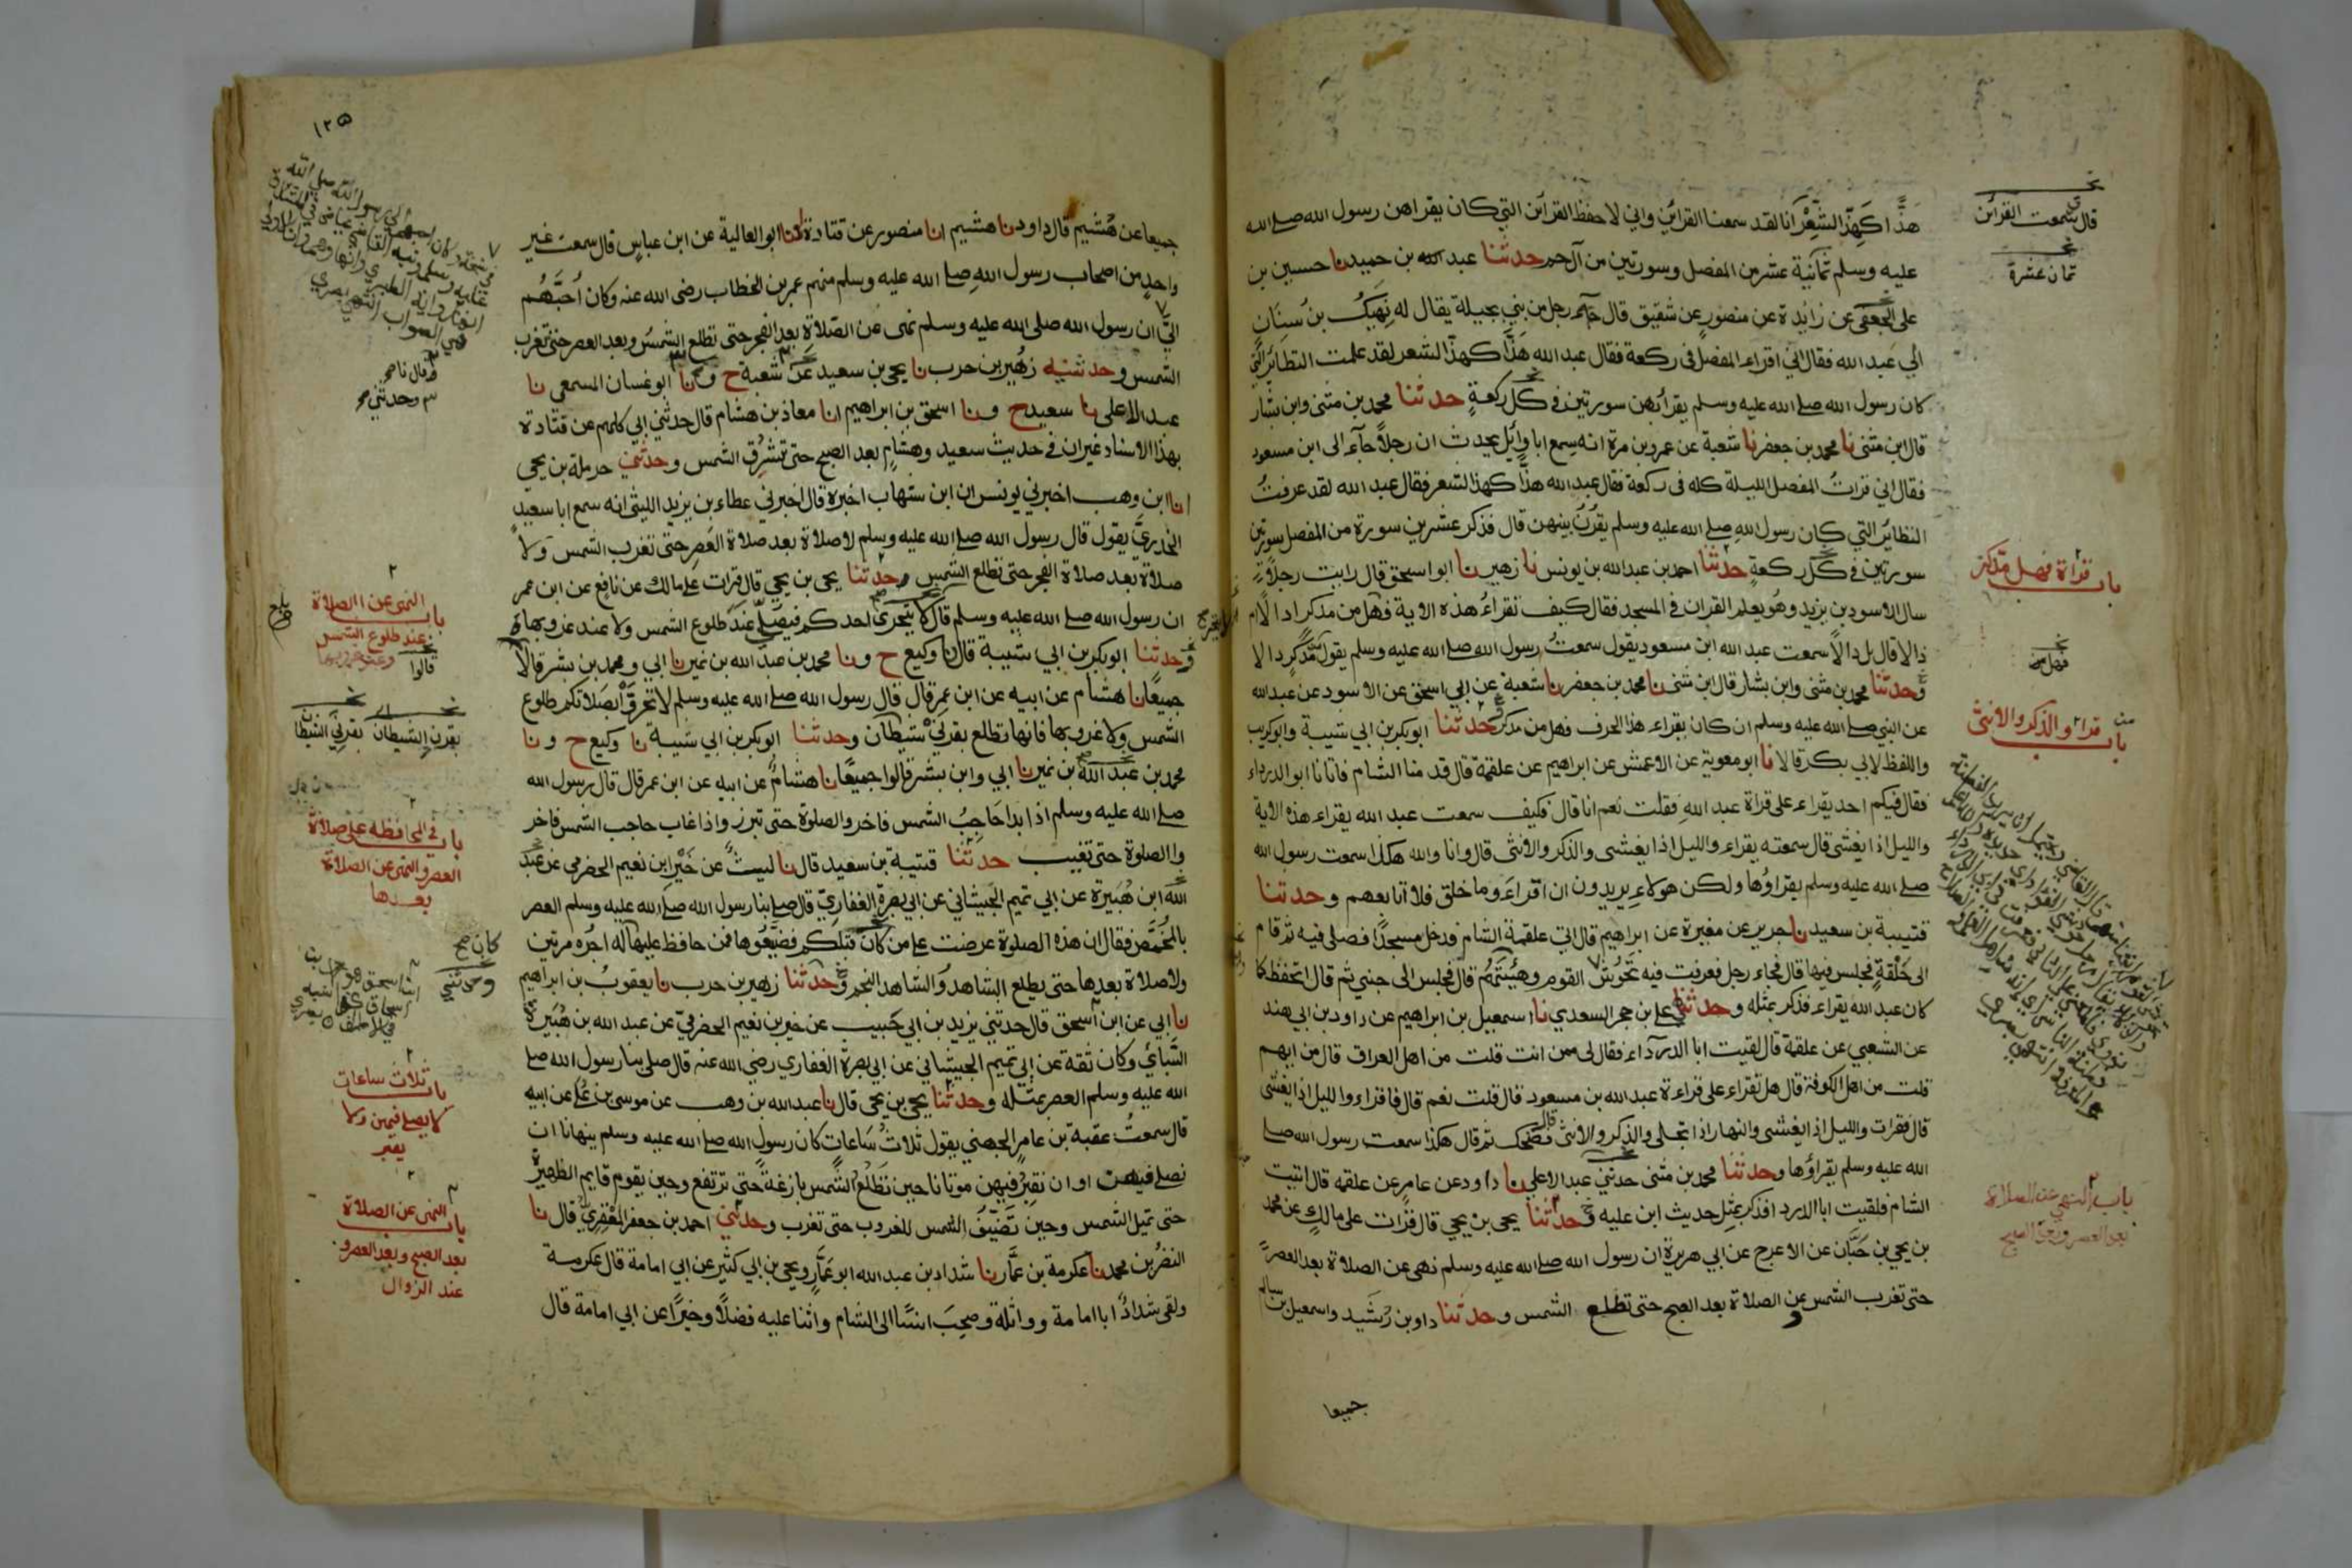 هَذًّا كَهَذِّ الشِّعْرِ انا لقد سمعنا القرائن واني لاحفظ القرائن التي كان يقراهن رسول الله صلى الله
عليه وسلم ثمانية عشر من المفصل وسورتين من آل حم حدثنا عبد الله بن حميد نا حسين بن
علي الجعفي عن زائدة عن منصور عن شقيق قال جآء رجل من بني بجيلة يقال له نَهِيكُ بنُ سِنَانٍ
الي عبد الله فقال اني اقراء المفصل في ركعة فقال عبد الله هذًّا كهذّ الشعر لقد علمت النظائر التي
كان رسول الله صلى الله عليه وسلم يقرأ بهن سورتين في كل ركعةٍ حدثنا محمد بن مثنى وابن بشار
قال ابن مثنى نا محمد بن جعفر نا شعبة عن عمرو بن مرة انه سمع ابا وائل يحدث ان رجلاً جآء الى ابن مسعود
فقال اني قراتُ المفصل الليلة كله في ركعة فقال عبد الله هذًّا كهذ الشعر فقال عبد الله لقد عرفتُ
النظائر التي كان رسول الله صلى الله عليه وسلم يقرُنُ بينهن قال فذكر عشرين سورة من المفصل سورتين
سورتين في كل ركعةٍ حدثنا احمد بن عبد الله بن يونس نا زهير نا ابو اسحق قال رايت رجلاً
سال الاسود بن يزيد وهُو يعلم القران في المسجد فقال كيف تقراءُ هذه الاية فهل من مدكر ادالًا ام
ذالا قال بل دالًا سمعت عبد الله ابن مسعود يقول سمعتُ رسول الله صلى الله عليه وسلم يقول مُدَّكِرٍ دالا
وحدثنا محمد بن مثنى وابن بشار قال ابن مثنى نا محمد بن جعفر نا شعبة عن ابي اسحق عن الاسود عن عبد الله
عن النبي صلى الله عليه وسلم ان كان يقراء هذا الحرف فهل من مدكر حدثنا ابو بكر بن ابي شيبة وابو كريب
واللفظ لابي بكر قالا نا ابو معوية عن الاعمش عن ابراهيم عن علقمة قال قدمنا الشام فاتانا ابو الدرداء
فقال فيكم احد يقراء على قراة عبد الله فقلت نعم انا قال فكيف سمعت عبد الله يقراء هذه الاية
والليل اذا يغشى قال سمعته يقراء والليل اذا يغشى والذكر والانثى قال وانا والله هكذا سمعت رسول الله
صلى الله عليه وسلم يقراوُها ولكن هولاءِ يريدون ان اقراءَ وما خلق فلا اتابعهم وحدثنا
قتيبة بن سعيد نا جرير عن مغيرة عن ابراهيم قال اتي علقمة الشام فدخل مسجدًا فصلى فيه ثم قام
الى حَلْقةٍ فجلس فيها قال فجاء رجل فعرفت فيه تحَوُّشَ القوم وهَيْئَتَهُم قال فجلس الى جنبي ثم قال اتحفظ كما
كان عبد الله يقراء فذكر بمثله وحدثني علي بن حجر السعدي نا اسمعيل بن ابراهيم عن داود بن ابي هند
عن الشعبي عن علقمة قال لقيت ابا الدرداء فقال لي ممن انت قلت من اهل العراق قال من ايهم
قلت من اهل الكوفة قال هل تقراء على قراءة عبد الله بن مسعود قال قلت نعم قال فاقراء والليل اذا يغشى
قال فقرات والليل اذا يغشى والنهار اذا تجلى والذكر والانثى قال فضحك ثم قال هكذا سمعت رسول الله صلى
الله عليه وسلم يقراؤها وحدثنا محمد بن مثنى حدثني عبد الاعلى نا داود عن عامر عن علقمه قال اتيت
الشام فلقيت ابا الدرداء فذكر بمثل حديث ابن عليه وحدثنا يحيى بن يحيى قال قرات على مالك عن محمد
بن يحيى بن حَبَّان عن الاعرج عن ابي هريرة ان رسول الله صلى الله عليه وسلم نهى عن الصلاة بعد العصر
حتى تغرب الشمس وعن الصلاة بعد الصبح حتى تطلع الشمس وحدثنا داود بن رُشَيد واسمعيل بن سالم
جميعا
قال سمعت القرائن
ثمان عشرة
باب قراة فهل مدكر
باب قراة والذكر والانثى
باب النهي عن الصلاة
بعد العصر وبعد الصبح
١٢٥
جميعا عن هُشيم قال داود نا هشيم انا منصور عن قتادة انا ابو العالية عن ابن عباس قال سمعت غير
واحدٍ من اصحاب رسول الله صلى الله عليه وسلم منهم عمر بن الخطاب رضي الله عنه وكان أحبَّهُم
اليَّ ان رسول الله صلى الله عليه وسلم نهى عن الصلاة بعد الفجر حتى تطلع الشمسُ وبعد العصر حتى تغرب
الشمس وحدثنيه زهير بن حرب نا يحيى بن سعيد عن شعبة ح ونا ابو غسان المسمعي نا
عبد الاعلى نا سعيد ح ونا اسحق بن ابراهيم انا معاذ بن هشام قال حدثني ابي كلهم عن قتادة
بهذا الاسناد غير ان في حديث سعيد وهشام بعد الصبح حتى تشرُق الشمس وحدثني حرملة بن يحيى
انا ابن وهب اخبرني يونس ان ابن شهاب اخبره قال اخبرني عطاء بن يزيد الليثي انه سمع ابا سعيدٍ
الخدريَّ يقول قال رسول الله صلى الله عليه وسلم لا صلاة بعد صلاة العصر حتى تغرب الشمس ولا
صلاة بعد صلاة الفجر حتى تطلع الشمس وحدثنا يحيى بن يحيى قال قرات على مالك عن نافع عن ابن عمر
ان رسول الله صلى الله عليه وسلم قال لا يتحرى احدكم فيصلي عند طلوع الشمس ولا عند غروبها
وحدثنا ابو بكر بن ابي شيبة قال نا وكيع ح ونا محمد بن عبد الله بن نمير نا ابي ومحمد بن بشر قالا
جميعًا نا هشام عن ابيه عن ابن عمر قال قال رسول الله صلى الله عليه وسلم لا تحرَّوْا بصلاتكم طلوع
الشمس ولا غروبها فانها تطلع بقرنَيْ شيطان وحدثنا ابو بكر بن ابي شيبة نا وكيع ح ونا
محمد بن عبد الله بن نمير نا ابي وابن بشر قالوا جميعًا نا هشامٌ عن ابيه عن ابن عمر قال قال رسول الله
صلى الله عليه وسلم اذا بدا حَاجِبُ الشمس فاخروا الصلوة حتى تبرز واذا غاب حاجب الشمس فاخر
وا الصلوة حتى تغيب حدثنا قتيبة بن سعيد قال نا ليثٌ عن خَيْر ابن نعيم الحضرمي عن عبد
الله ابن هُبَيرة عن ابي تميم الجَيشاني عن ابي بصرة الغفاريّ قال صلى بنا رسول الله صلى الله عليه وسلم العصر
بالمُخَمَّص فقال ان هذه الصلوة عرضت على من كان قبلكم فضيَّعُوها فمن حافظ عليها له اجُره مرتين
ولا صلاة بعدها حتى يطلع الشاهد والشاهد النجم وحدثنا زهير بن حرب نا يعقوبُ بن ابراهيم
نا ابي عن ابن اسحق قال حدثني يزيد بن ابي حَبيب عن خير بن نعيم الحضرميّ عن عبد الله بن هُبَيرة
السَّبائي وكان ثقة عن ابي تميم الجيشاني عن ابي بصرة الغفاري رضي الله عنه قال صلى بنا رسول الله صلى
الله عليه وسلم العصر بمثله وحدثنا يحيى بن يحيى قال نا عبد الله بن وهب عن موسى بن عُلَي عن ابيه
قال سمعتُ عقبة بن عامر الجهني يقول ثلاثُ سَاعاتٍ كان رسول الله صلى الله عليه وسلم ينهانا ان
نصلي فيهن او ان نقبُرَ فيهن موتانا حين تَطْلُعُ الشمس بازغةً حتى ترتفع وحين يقوم قايم الظهيرة
حتى تميل الشمس وحين تَضَيَّفُ الشمس للغروب حتى تغرب وحدثني احمد بن جعفر المَعْقِريُّ قال نا
النضرُ بن محمد نا عكرمة بن عمَّار نا شداد بن عبد الله ابو عَمَّارٍ ويحيى بن ابي كثير عن ابي امامة قال عكرمة
ولقى شدادٌ ابا امامة وواثلة وصحِبَ انسًا الى الشام واثنا عليه فضلاً وخيرًا عن ابي امامة قال
وقال نا صح
وحدثني صح
باب النهى عن الصلاة
عند طلوع الشمس
وعند غروبها
قالوا
بقرن الشيطان بقرني الشيطان
باب في المحافظة على صلاة
العصر والنهى عن الصلاة
بعدها
كان صح
وحدثني
باب ثلاث ساعات
لا يصلى فيهن ولا
يقبر
باب النهى عن الصلاة
بعد الصبح وبعد العصر و
عند الزوال